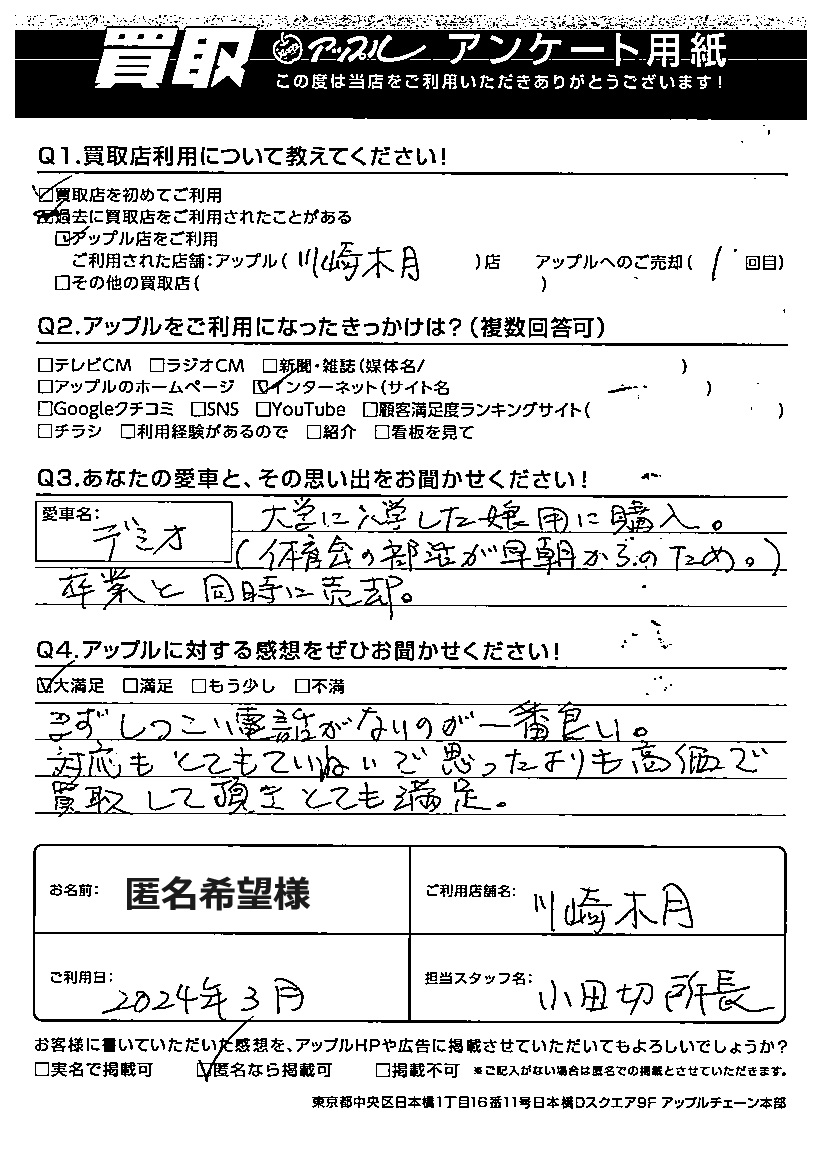 買取 アップル アンケート用紙
この度は当店をご利用いただきありがとうございます!
Q1.買取店利用について教えてください!
☑買取店を初めてご利用
過去に買取店をご利用されたことがある
☑アップル店をご利用
ご利用された店舗:アップル( 川崎木月 )店 アップルへのご売却( 1 回目)
□その他の買取店( )
Q2.アップルをご利用になったきっかけは?(複数回答可)
□テレビCM □ラジオCM □新聞・雑誌(媒体名/ )
□アップルのホームページ ☑インターネット(サイト名 )
□Googleクチコミ □SNS □YouTube □顧客満足度ランキングサイト( )
□チラシ □利用経験があるので □紹介 □看板を見て
Q3.あなたの愛車と、その思い出をお聞かせください!
愛車名: デミオ
大学に入学した娘用に購入。
(体育会の部活が早朝からのため。)
卒業と同時に売却。
Q4.アップルに対する感想をぜひお聞かせください!
☑大満足 □満足 □もう少し □不満
まずしつこい電話がないのが一番良い。
対応もとてもていねいで思ったよりも高価で
買取して頂きとても満足。
お名前: 匿名希望様 ご利用店舗名: 川崎木月
ご利用日: 2024年3月 担当スタッフ名: 小田切所長
お客様に書いていただいた感想を、アップルHPや広告に掲載させていただいてもよろしいでしょうか?
□実名で掲載可 ☑匿名なら掲載可 □掲載不可 ※ご記入がない場合は匿名での掲載とさせていただきます。
東京都中央区日本橋1丁目16番11号日本橋Dスクエア9F アップルチェーン本部